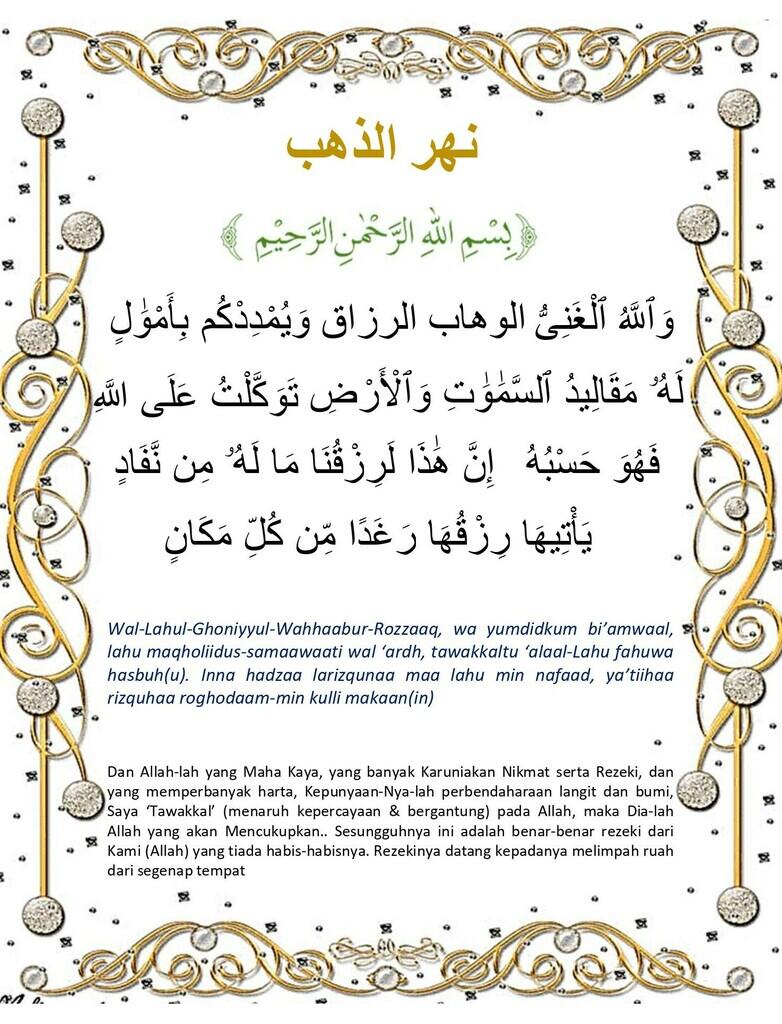 نهر الذهب
﴿بِسْمِ اللهِ الرَّحْمٰنِ الرَّحِيْمِ﴾
وَٱللَّهُ ٱلْغَنِىُّ الوهاب الرزاق وَيُمْدِدْكُم بِأَمْوَٰلٍ
لَهُۥ مَقَالِيدُ ٱلسَّمَٰوَٰتِ وَٱلْأَرْضِ تَوَكَّلْتُ عَلَى اللَّهِ
فَهُوَ حَسْبُهُ إِنَّ هَٰذَا لَرِزْقُنَا مَا لَهُۥ مِن نَّفَادٍ
يَأْتِيهَا رِزْقُهَا رَغَدًا مِّن كُلِّ مَكَانٍ
Wal-Lahul-Ghoniyyul-Wahhaabur-Rozzaaq, wa yumdidkum bi’amwaal,
lahu maqholiidus-samaawaati wal ‘ardh, tawakkaltu ‘alaal-Lahu fahuwa
hasbuh(u). Inna hadzaa larizqunaa maa lahu min nafaad, ya’tiihaa
rizquhaa roghodaam-min kulli makaan(in)
Dan Allah-lah yang Maha Kaya, yang banyak Karuniakan Nikmat serta Rezeki, dan
yang memperbanyak harta, Kepunyaan-Nya-lah perbendaharaan langit dan bumi,
Saya ‘Tawakkal’ (menaruh kepercayaan & bergantung) pada Allah, maka Dia-lah
Allah yang akan Mencukupkan.. Sesungguhnya ini adalah benar-benar rezeki dari
Kami (Allah) yang tiada habis-habisnya. Rezekinya datang kepadanya melimpah ruah
dari segenap tempat